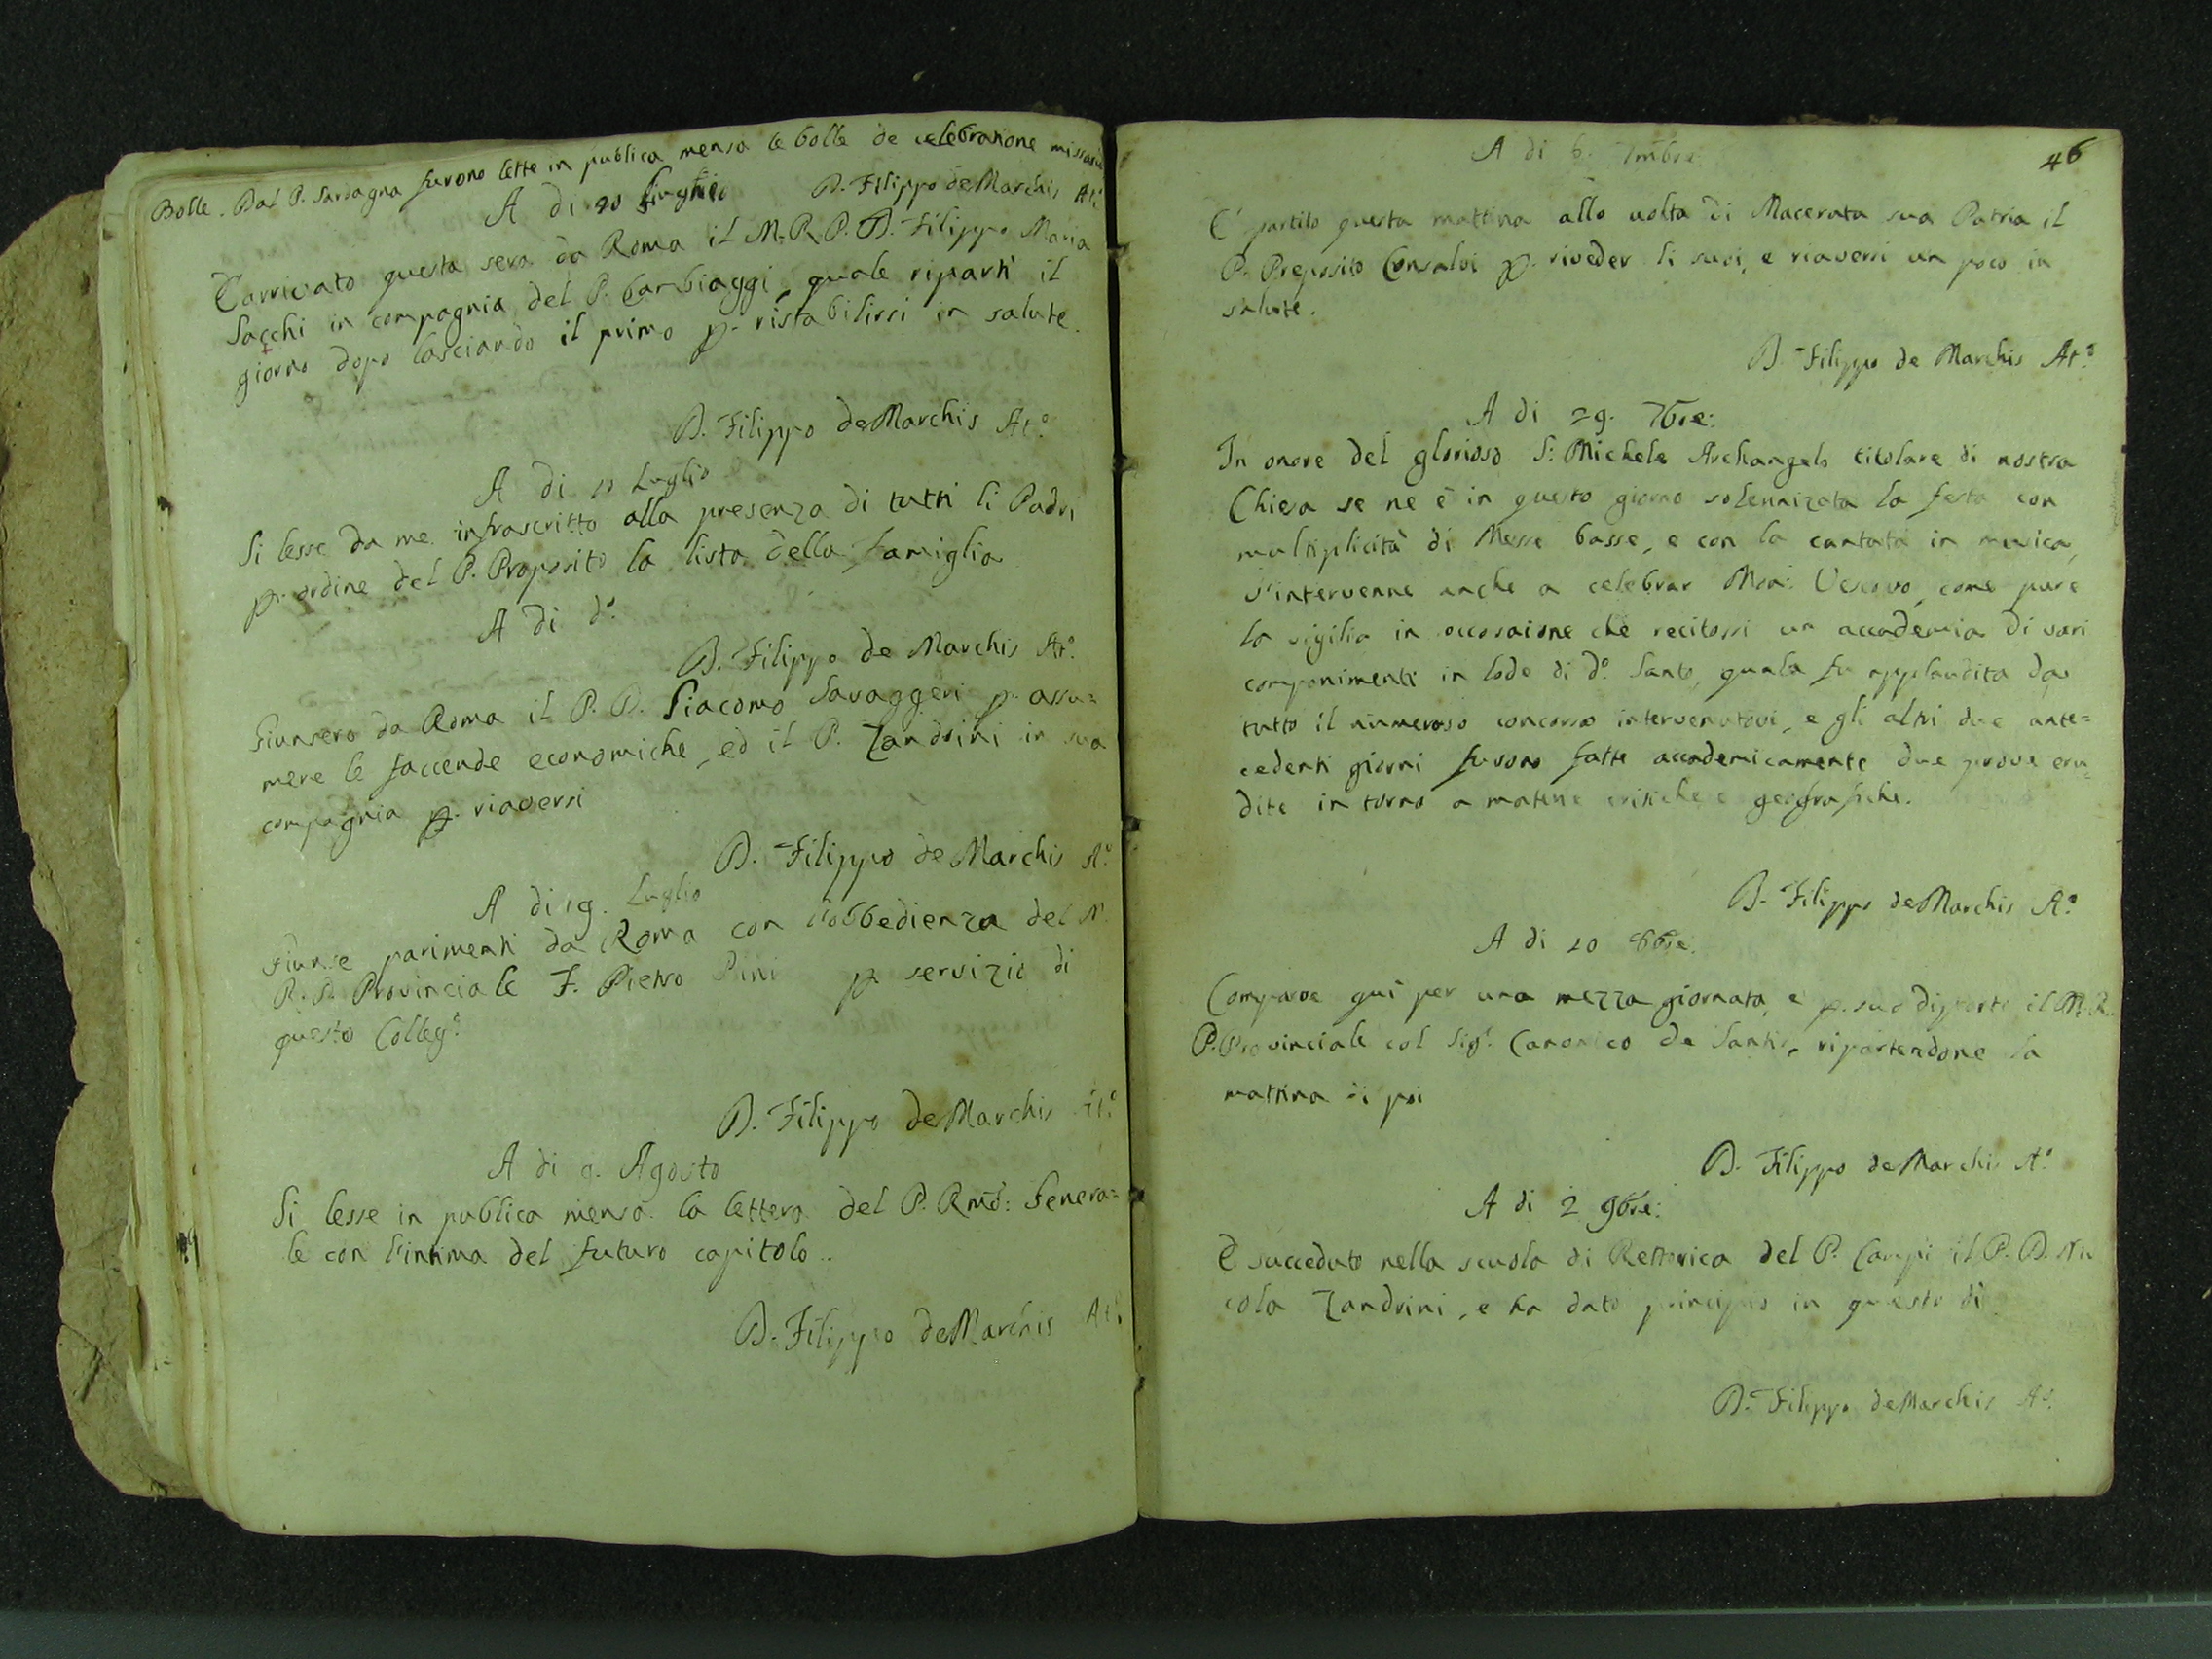 Bolle. Dal P. Sardagna furono lette in publica mensa le bolle de celebratione missarum
D. Filippo de Marchis At:
A di 20 Giugnio
È arrivato questa sera da Roma il M. R. P. D. Filippo Maria
Sacchi in compagnia del P. Barbiaggi, quale ripartì il
giorno dopo lasciando il primo p. ristabilirsi in salute.
D. Filippo de Marchis At.º
A di 11 Luglio
Si lesse da me infrascritto alla presenza di tutti li Padri
p. ordine del P. Proposito la lista della famiglia
A di dº
D. Filippo de Marchis At.º
Giunsero da Roma il P. D. Giacomo Savaggeri p. assu=
mere le faccende economiche, ed il P. Zandrini in sua
compagnia p. riaversi
D. Filippo de Marchis A.º
A di 19. Luglio
Giunse parimenti da Roma con l'obbedienza del M.
R. P. Provinciale F. Pietro Pini p. servizio di
questo Colleg.º
D. Filippo de Marchis At.º
A di 9. Agosto
Si lesse in publica mensa la lettera del P. Rmo: Genera=
le con l'intima del futuro capitolo..
D. Filippo de Marchis At.
46
A di 6. 7mbre
È partito questa mattina alla volta di Macerata sua Patria il
P. Preposito Consalvi p. riveder li suoi, e riaversi un poco in
salute.
D. Filippo de Marchis At.º
A di 29. 7bre:
In onore del glorioso S: Michele Archangelo titolare di nostra
Chiesa se ne è in questo giorno solennizata la festa con
multiplicità di Messe basse, e con la cantata in musica,
v'intervenne anche a celebrar Mon: Vescovo, come pure
la vigilia in occosaione che recitossi un accademia di vari
componimenti in lode di dº. Santo, quala fu applaudita da
tutto il numeroso concorso intervenutovi, e gli altri due ante=
cedenti giorni furono fatte accademicamente due prove eru=
dite in torno a materie critiche e geografiche.
D. Filippo de Marchis A.º
A di 10 8bre.
Comparve quì per una mezza giornata, e p. suo diporto il M. R.
P. Provinciale col Sig.r Canonico de Santis, ripartendone la
mattina di poi
D. Filippo de Marchis At.º
A di 2 9bre:
È succeduto nella scuola di Rettorica del P. Campi il P. D. Ni
cola Zandrini, e ha dato principio in questo dì
D. Filippo de Marchis At.